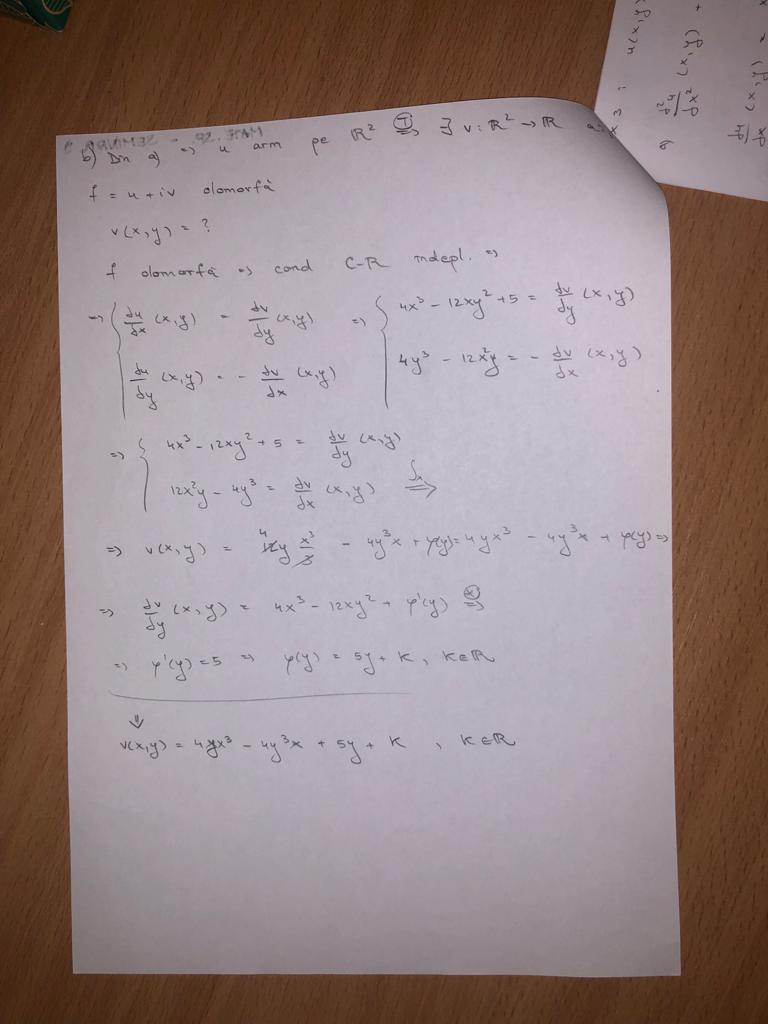 b) Din a) => u arm pe ℝ² (T)=> ∃ v: ℝ² → ℝ a.
f = u + iv olomorfă
v(x,y) = ?
f olomorfă => cond C-R indepl. =>
=> { du/dx (x,y) = dv/dy (x,y) => { 4x³ - 12xy² + 5 = dv/dy (x,y)
du/dy (x,y) = - dv/dx (x,y) 4y³ - 12x²y = - dv/dx (x,y)
=> { 4x³ - 12xy² + 5 = dv/dy (x,y)
12x²y - 4y³ = dv/dx (x,y) =>
=> v(x,y) = 12 4 y x³/3 - 4y³x + φ(y) = 4yx³ - 4y³x + φ(y) =>
=> dv/dy (x,y) = 4x³ - 12xy² + φ'(y) (*)=>
=> φ'(y) = 5 => φ(y) = 5y + K, K∈ℝ
⇓
v(x,y) = 4yx³ - 4y³x + 5y + K , K∈ℝ
u(x,y)
(x,y) +
(x,y) =